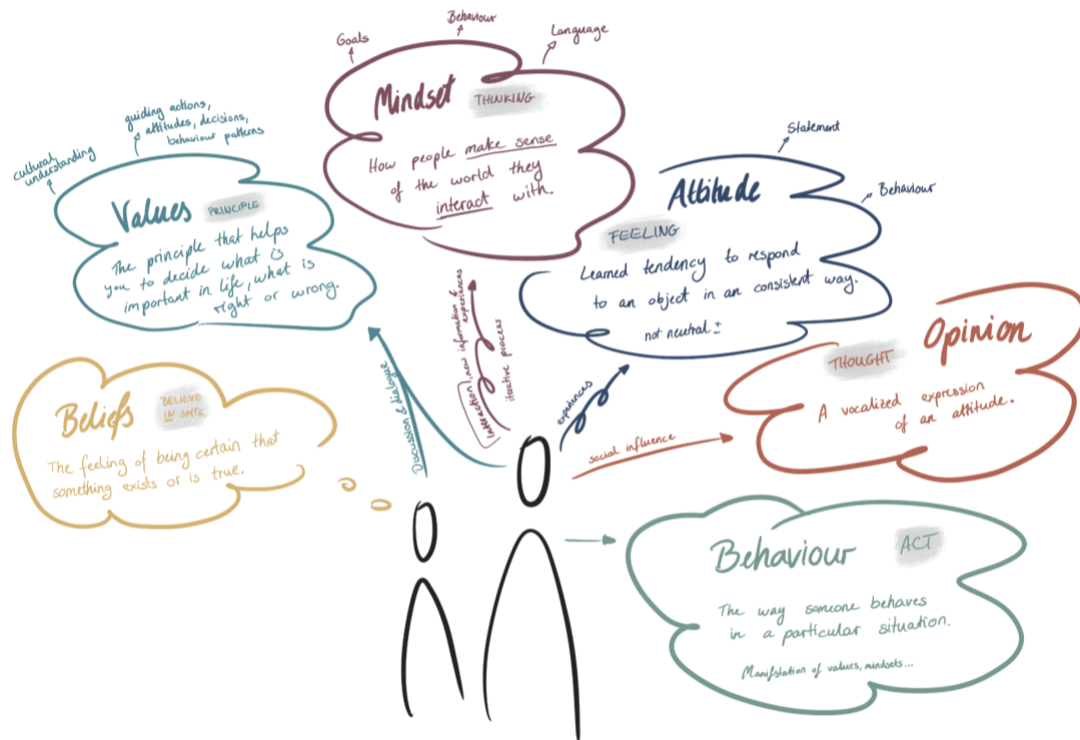 Goals
Behaviour
Language
Mindset
THINKING
How people make sense
of the world they
interact with.
cultural
understanding
guiding actions,
attitudes, decisions,
behaviour patterns
Values
PRINCIPLE
The principle that helps
you to decide what is
important in life, what is
right or wrong.
Statement
Behaviour
Attitude
FEELING
Learned tendency to respond
to an object in an consistent way.
not neutral ±
Opinion
THOUGHT
A vocalized expression
of an attitude.
Beliefs
BELIEVE
IN SMTG.
The feeling of being certain that
something exists or is true.
Discussion & dialogue
interaction, new information &
experiences
iterative process
experiences
social influence
Behaviour
ACT
The way someone behaves
in a particular situation.
Manifstation of values, mindsets...